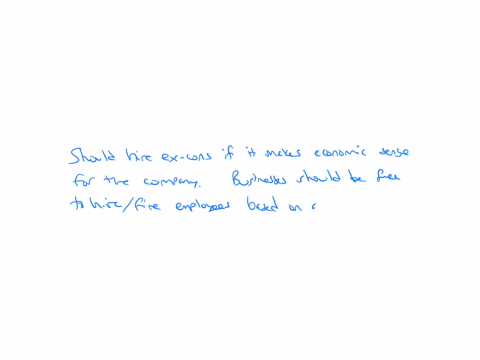 Should hire ex-cons if it makes economic sense
for the company. Businesses should be free
to hire/fire employees based on